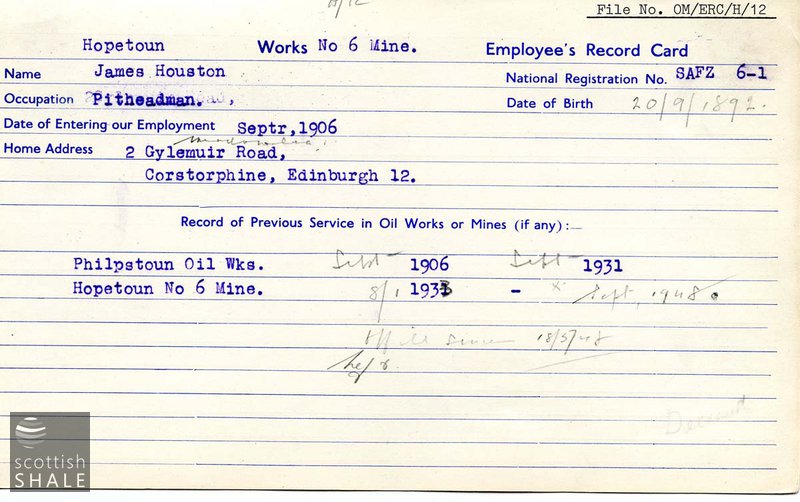 File No. OM/ERC/H/12
Hopetoun Works No 6 Mine. Employee's Record Card
Name James Houston National Registration No. SAFZ 6-1
Occupation Pitheadman. , Date of Birth 20/9/1892.
Date of Entering our Employment Septr,1906
Home Address 2 Gylemuir Road,
Corstorphine, Edinburgh 12.
Record of Previous Service in Oil Works or Mines (if any):—
Philpstoun Oil Wks. Sept 1906 Sept 1931
Hopetoun No 6 Mine. 8/1 193 - x Sept, 1948.
18/5/48
Deceased
scottish
SHALE